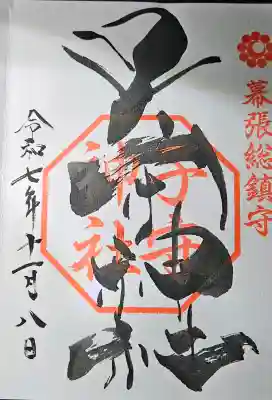 幕張総鎮守
子守神社
子守神社
令和七年十一月八日